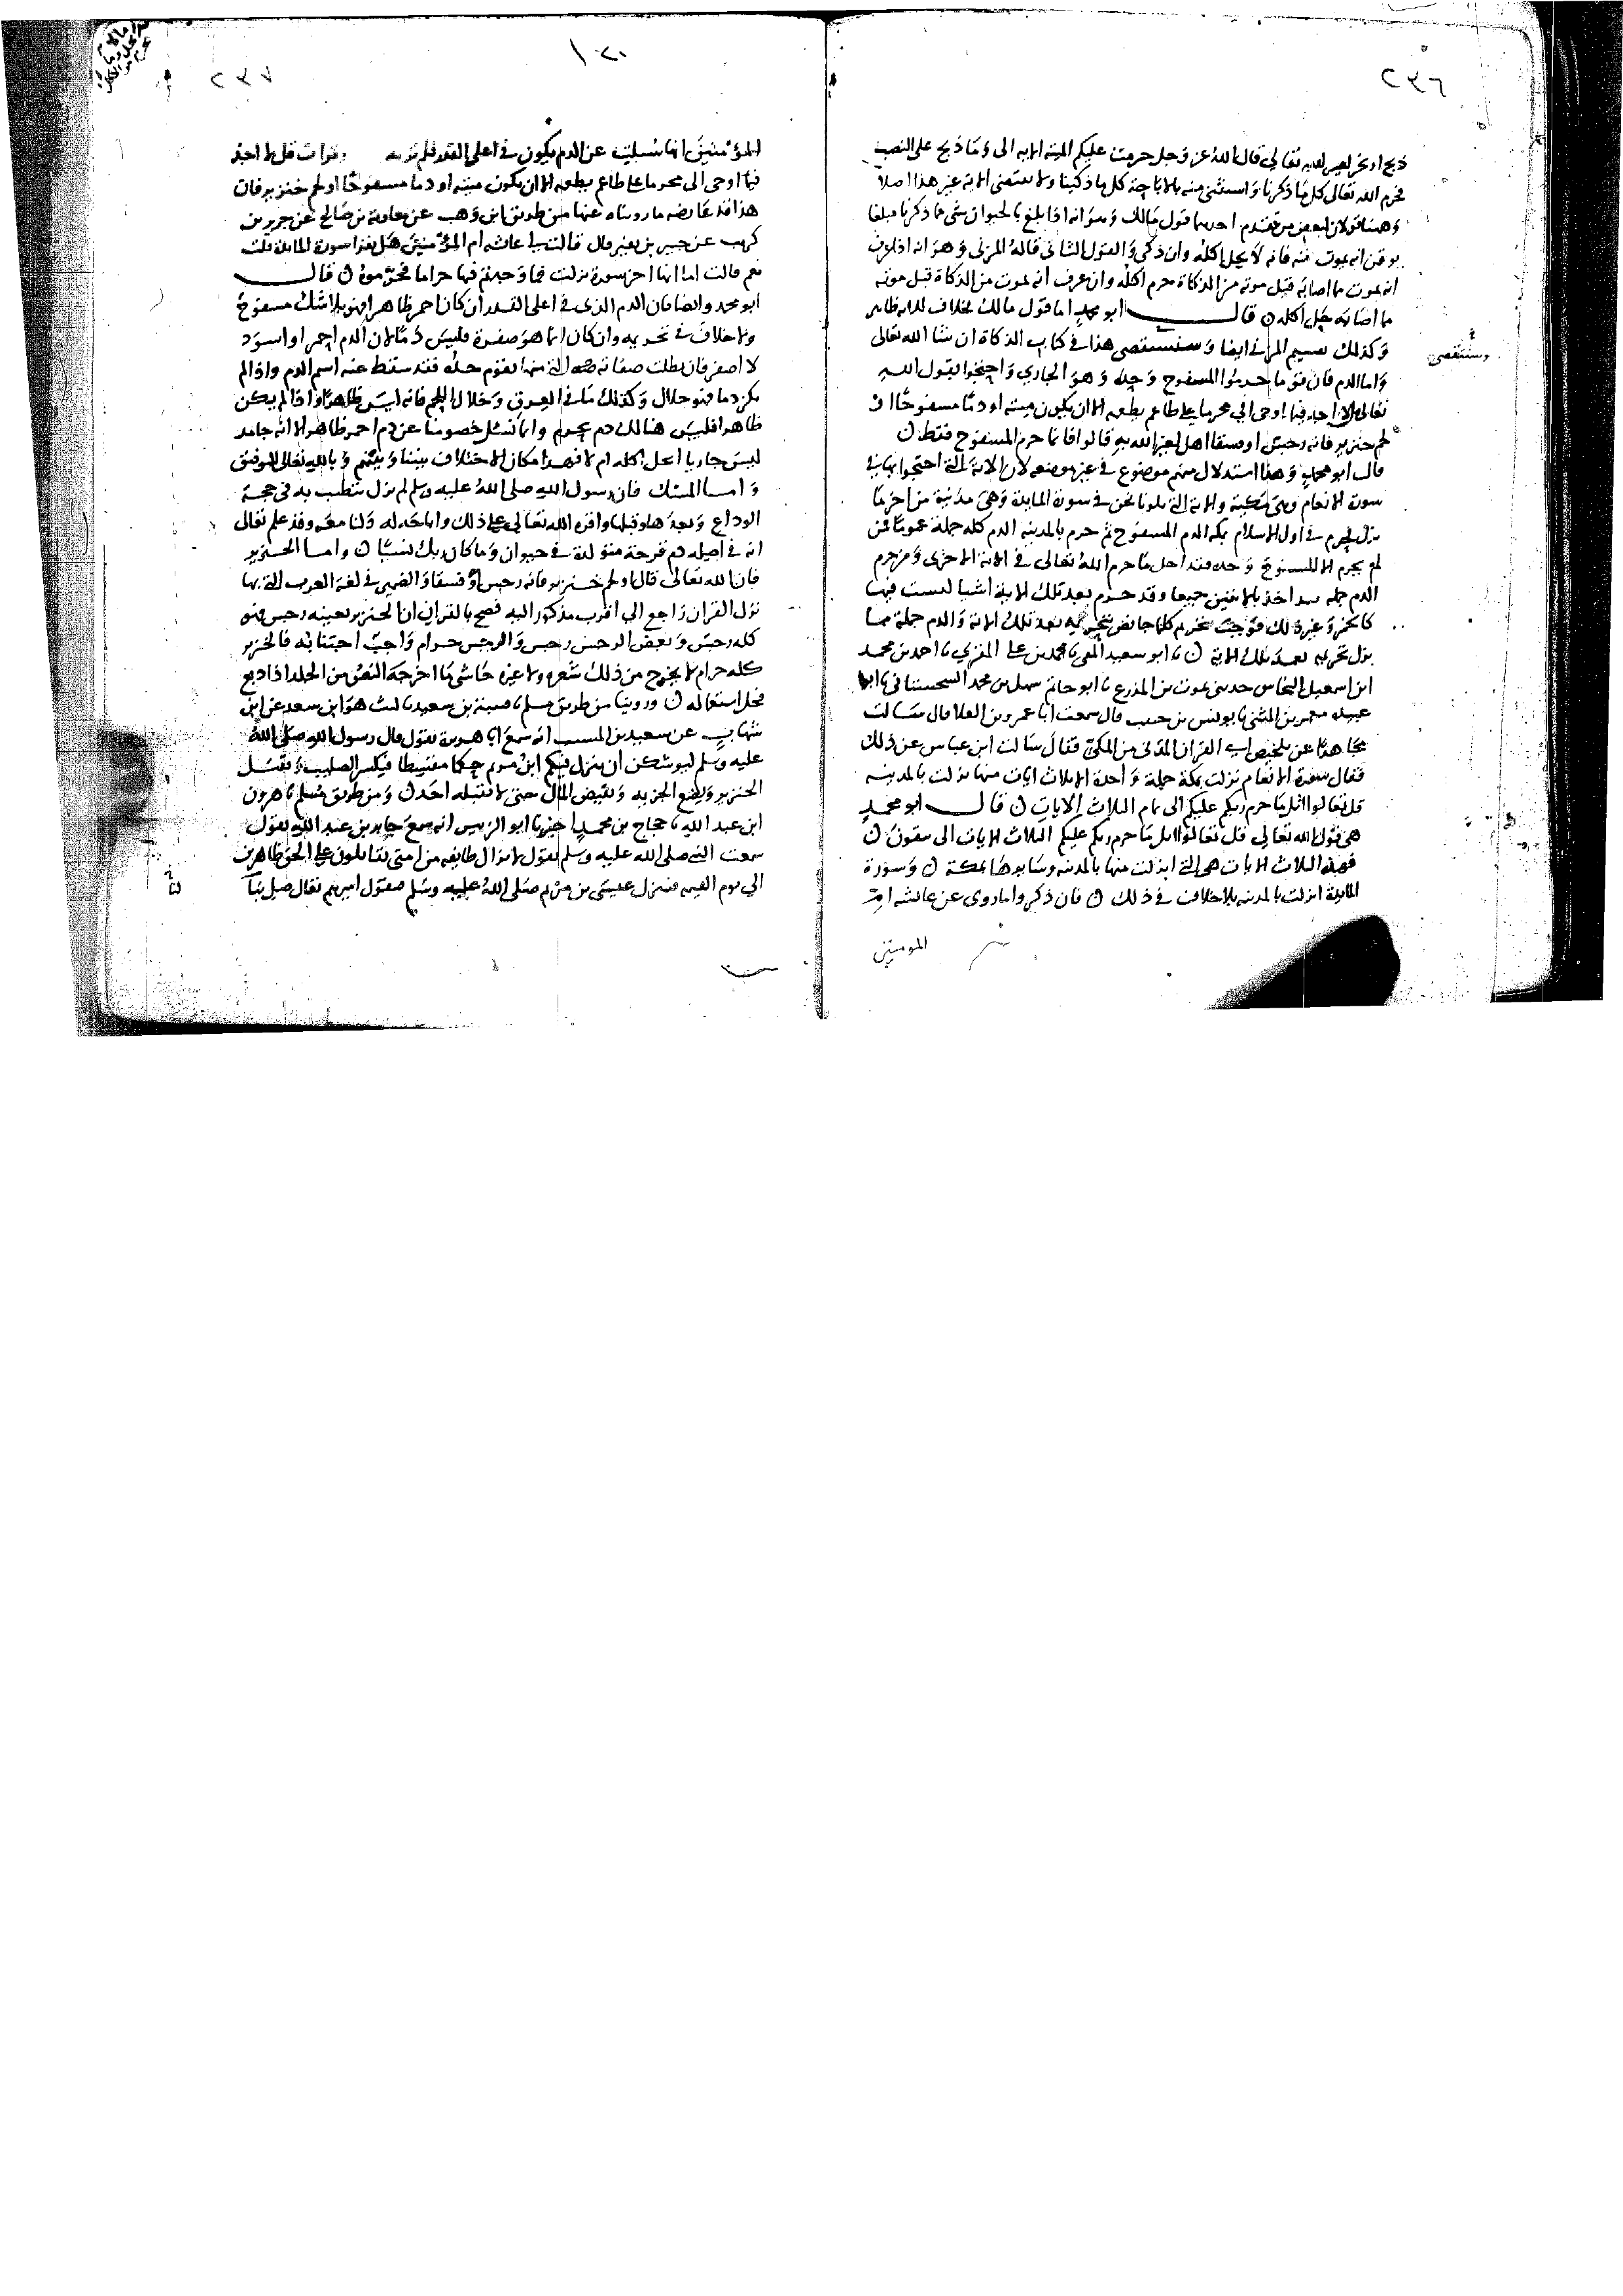 ٢٣٦
ذبح او نحر لغير الله تعالى قال الله عز وجل حرمت عليكم الميتة الاية الى وما ذبح على النصب
فحرم الله تعالى كل ما ذكرنا واستثنى منه بالاباحة كل ما ذكينا ولا مقتضى للاية غير هذا اصلا
وههنا قولان لبعض من تقدم احدهما قول مالك وهو انه اذا بلغ بالحيوان شى مما ذكرنا مبلغا
يوقن انه يموت منه فانه لا يحل اكله وان ذكى والقول الثانى قاله المزنى وهو انه
انه يموت مما اصابه قبل موته من الذكاة حرم اكله وان عرف انه يموت من الذكاة قبل موته
مما اصابه حل اكله ن قال ابو محمد اما قول مالك فخلاف للاية ظاهر
وكذلك تقسيم المزنى ايضا وسنستقصى هذا فى كتاب الذكاة ان شا الله تعالى
وستقصى
واما الدم فان قوما حرموا المسفوح وحده وهو الجارى واحتجوا بقول الله
تعالى لا اجد فيما اوحى الى محرما على طاعم يطعمه الا ان يكون ميتة او دما مسفوحا او
لحم خنزير فانه رجس او فسقا اهل لغير الله به قالوا فانما حرم المسفوح فقط ن
قال ابو محمد وهذا استدلال منهم موضوع فى غير موضعه لان الاية التى احتجوا بها فى
سورة الانعام وهى مكية والاية التى تلونا نحن فى سورة المايدة وهى مدنية من اخر ما
نزل فحرم فى اول الاسلام بمكة الدم المسفوح ثم حرم بالمدينة الدم كله جملة عموما فمن
لم يحرم الا المسفوح وحده فقد احل ما حرم الله تعالى فى الاية الاخرى ومن حرم
الدم جملة فقد اخذ بالايتين جميعا وقد حرم بعد تلك الاية اشيا ليست فيها
كالخمر وغير ذلك فوجب تحريم كل ما جا نص بتحريمه بعد تلك الاية والدم جملة مما
نزل تحريمه بعد تلك الاية ن نا ابو سعيد الفتى نا محمد بن على المقرى نا احمد بن محمد
ابن اسمعيل النحاس حدثنى يموت بن المزرع نا ابو حاتم سهل بن محمد السجستانى نا ابو
عبيدة معمر بن المثنى نا يونس بن حبيب قال سمعت ابا عمرو بن العلا قال سالت
مجاهدا عن تلخيص اى القران المدنى من المكى فقال سالت ابن عباس عن ذلك
فقال سورة الانعام نزلت بمكة جملة واحدة الا ثلاث ايات منها نزلت بالمدينة
قل تعالوا اتل ما حرم ربكم عليكم الى تمام الثلاث الايات ن قال ابو محمد
هى قول الله تعالى قل تعالوا اتل ما حرم ربكم عليكم الثلاث الايات الى تتقون ن
فهذه الثلاث الايات هى التى انزلت منها بالمدينة وسايرها بمكة ن وسورة
المايدة انزلت بالمدينة بلا خلاف فى ذلك ن فان ذكروا ما روى عن عايشة ام
المومنين
٢٣٧
١٢٠
المؤمنين انها سيلت عن الدم يكون فى اعلى القدر فلم تر به وقرات قل لا اجد
فيما اوحى الى محرما على طاعم يطعمه الا ان يكون ميتة او دما مسفوحا او لحم خنزير فان
هذا قد عارضه ما رويناه عنها من طريق ابن وهب عن معاوية بن صالح عن جرير بن
كريب عن جبير بن نفير قال قالت لى عايشة ام المؤمنين هل تقرا سورة المايدة قلت
نعم قالت اما انها اخر سورة نزلت فما وجدتم فيها حراما فحرموه ن قال
ابو محمد وايضا فان الدم الذى فى اعلى القدر ان كان احمر ظاهرا فهو بلا شك مسفوح
ولا خلاف فى تحريمه وان كان انما هو صفرة فليس دما لان الدم احمر او اسود
لا اصفر فان بطلت صفاته التى منها يقوم حده فقد سقط عنه اسم الدم واذا لم
يكن دما فهو حلال وكذلك ما فى العروق وخلال اللحم فانه ليس ظاهرا واذا لم يكن
ظاهرا فليس هنالك دم يحرم وانما نسل خصومنا عن دم احمر ظاهر الا انه جامد
ليس جاريا احل اكله ام لا فهذا مكان الاختلاف بيننا وبينهم وبالله تعالى التوفيق
واما المسك فان رسول الله صلى الله عليه وسلم لم يزل يتطيب به فى حجة
الوداع وبعدها وقبلها واقره الله تعالى على ذلك واباحه له ولنا معه وقد علم تعالى
انه فى اصله دم قرحة متولدة فى حيوان وما كان ربك نسيا ن واما الخنزير
فان الله تعالى قال او لحم خنزير فانه رجس او فسقا والضمير فى لغة العرب التى بها
نزل القران راجع الى اقرب مذكور اليه فصح بالقران ان الخنزير بعينه رجس فهو
كله رجس وبعض الرجس رجس والرجس حرام واجب اجتنابه فالخنزير
كله حرام لا يخرج من ذلك شعره ولا غيره حاشى ما اخرجه النص من الجلد اذا دبغ
فحل استعماله ن وروينا من طريق مسلم نا قتيبة بن سعيد نا ليث هو ابن سعد عن ابن
شهاب عن سعيد بن المسيب انه سمع ابا هريرة يقول قال رسول الله صلى الله
عليه وسلم ليوشكن ان ينزل فيكم ابن مريم حكما مقسطا فيكسر الصليب ويقتل
الخنزير ويضع الجزية ويفيض المال حتى لا يقبله احد ن ومن طريق مسلم نا هرون
ابن عبد الله نا حجاج بن محمد اخبرنا ابو الزبير انه سمع جابر بن عبد الله يقول
سمعت النبى صلى الله عليه وسلم يقول لا تزال طايفة من امتى يقاتلون على الحق ظاهرين
الى يوم القيمة فينزل عيسى بن مريم صلى الله عليه وسلم فيقول اميرهم تعال صل بنا
لنا